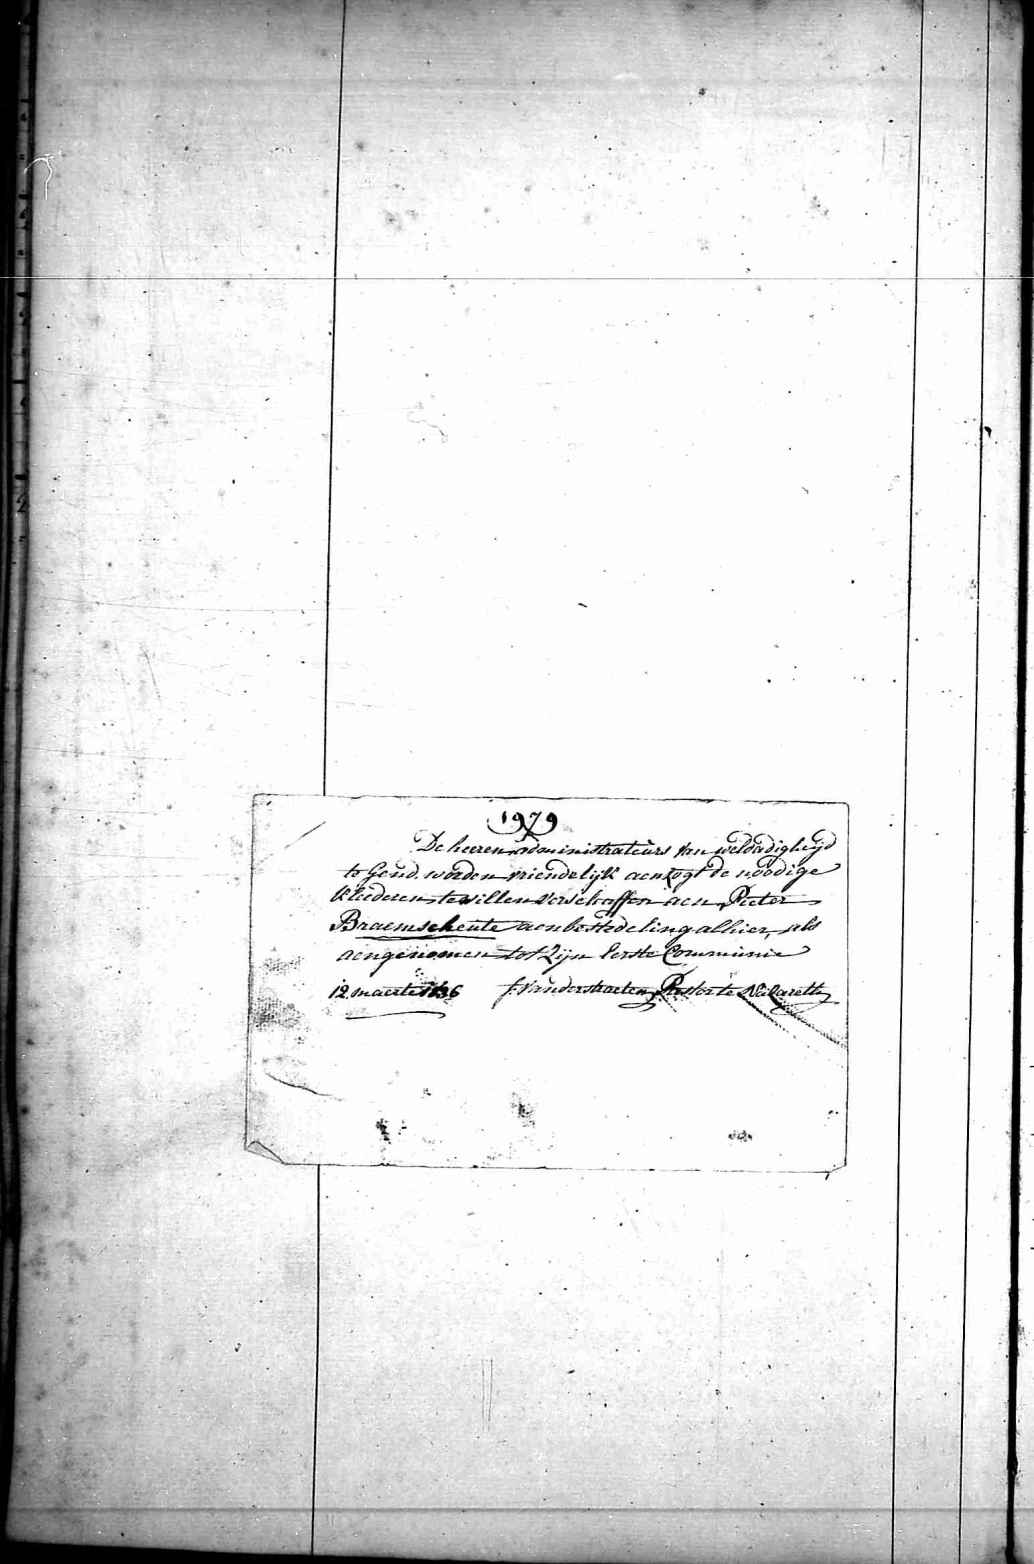 1979
De heeren administrateurs van weldadigheijd
te Gend worden vriendelijk aenzogt de noodige
kleederen te willen verschaffen aen Pieter
Braemscheute aenbestedeling alhier, als
aengenomen tot zijn Eerste Communie
12 maerte 1836 f. vanderstraeten Pastor te Nazareth
2